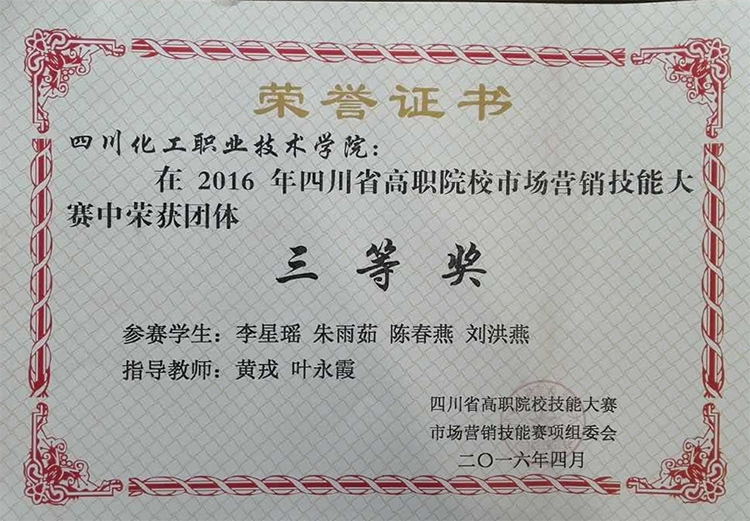 荣誉证书
四川化工职业技术学院：
在 2016 年四川省高职院校市场营销技能大
赛中荣获团体
三等奖
参赛学生：李星瑶 朱雨茹 陈春燕 刘洪燕
指导教师：黄戎 叶永霞
四川省高职院校技能大赛
市场营销技能赛项组委会
二〇一六年四月